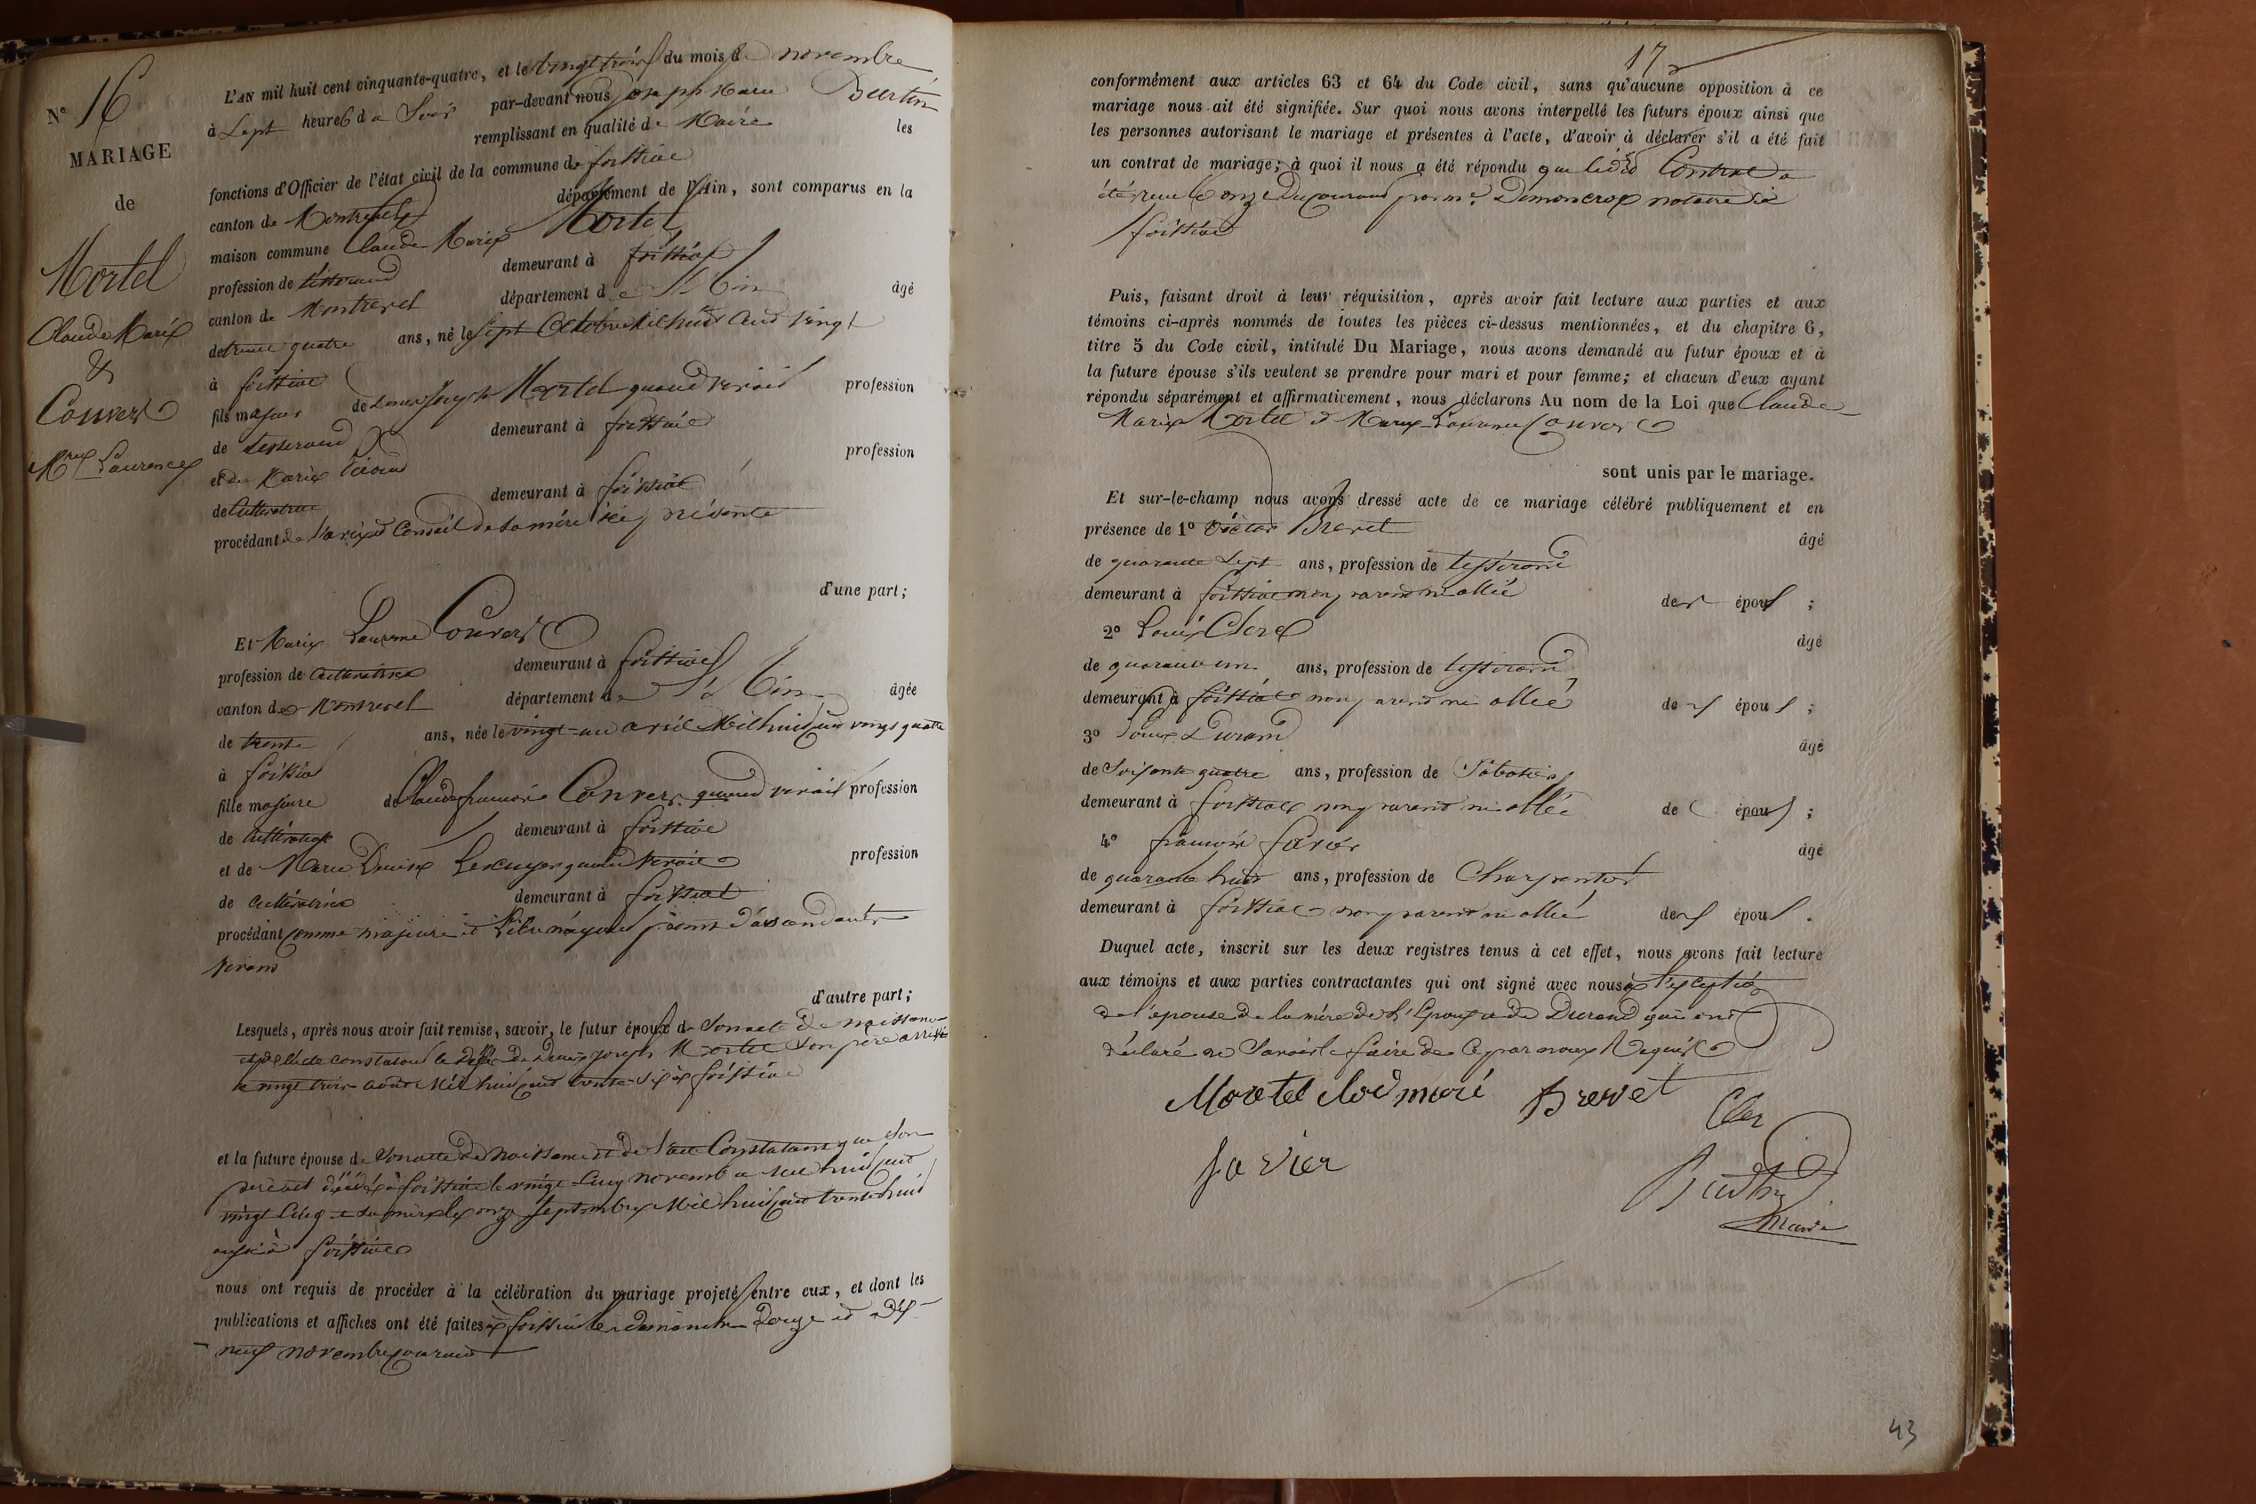 N° 16
MARIAGE
de
Mortel
Claude Marie
&
Convers
Mie Laurence
L'AN mil huit cent cinquante-quatre, et le vingt trois du mois de novembre
à Sept heures du Soir par-devant nous Joseph Marie Burtin
remplissant en qualité de Maire les
fonctions d'Officier de l'état civil de la commune de foissiat
canton de Montrevel département de l'Ain, sont comparus en la
maison commune Claude Marie Mortel
profession de tisserand demeurant à foissiat
canton de Montrevel département de l'Ain âgé
de trente quatre ans, né le sept Octobre Mil huit Cent vingt
à foissiat
fils majeur de Denis Joseph Mortel quand vivait profession
de tisserand demeurant à foissiat
et de Marie profession
de Cultivatrice demeurant à foissiat
procédant de l'avis et Conseil de sa mère ici présente
d'une part;
Et Marie Laurence Convers
profession de Cultivatrice demeurant à foissiat
canton de Montrevel département de l'Ain âgée
de trente ans, née le vingt un avril Mil huit cent vingt quatre
à foissiat
fille majeure de Claude françois Convers quand vivait profession
de Cultivateur demeurant à foissiat
et de Marie Denise Lescuyer quand vivait profession
de Cultivatrice demeurant à foissiat
procédant comme majeure et libre n'ayant point d'ascendants
vivant
d'autre part;
Lesquels, après nous avoir fait remise, savoir, le futur époux de Son acte de naissance
et de celui constatant le décès de Denis Joseph Mortel Son père arrivé
le vingt trois août Mil huit cent trente six à foissiat
et la future épouse de Son acte de naissance et de l'acte Constatant que Son
père est décédé à foissiat le vingt Cinq novembre Mil huit cent
vingt Cinq et sa mère le onze Septembre Mil huit cent trente huit
aussi à foissiat
nous ont requis de procéder à la célébration du mariage projeté entre eux, et dont les
publications et affiches ont été faites à foissiat les dimanches Douze et dix
neuf novembre courant
17
conformément aux articles 63 et 64 du Code civil, sans qu'aucune opposition à ce
mariage nous ait été signifiée. Sur quoi nous avons interpellé les futurs époux ainsi que
les personnes autorisant le mariage et présentes à l'acte, d'avoir à déclarer s'il a été fait
un contrat de mariage; à quoi il nous a été répondu que ledit Contrat a
été reçu le onze du courant par me Dimoncrop notaire à
foissiat
Puis, faisant droit à leur réquisition, après avoir fait lecture aux parties et aux
témoins ci-après nommés de toutes les pièces ci-dessus mentionnées, et du chapitre 6,
titre 5 du Code civil, intitulé Du Mariage, nous avons demandé au futur époux et à
la future épouse s'ils veulent se prendre pour mari et pour femme; et chacun d'eux ayant
répondu séparément et affirmativement, nous déclarons Au nom de la Loi que Claude
Marie Mortel et Marie Laurence Convers
sont unis par le mariage.
Et sur-le-champ nous avons dressé acte de ce mariage célébré publiquement et en
présence de 1° Victor Brevet âgé
de quarante Sept ans, profession de tisserand
demeurant à foissiat non parent ni allié des époux ;
2° Louis Clerc âgé
de quarante un ans, profession de tisserand
demeurant à foissiat non parent ni allié des époux ;
3° Louis Durand âgé
de Soixante quatre ans, profession de Sabotier
demeurant à foissiat non parent ni allié des époux ;
4° françois favier âgé
de quarante huit ans, profession de Charpentier
demeurant à foissiat non parent ni allié des époux .
Duquel acte, inscrit sur les deux registres tenus à cet effet, nous avons fait lecture
aux témoins et aux parties contractantes qui ont signé avec nous à l'exception
de l'épouse de la mère de l'Epoux et de Durand qui ont
déclaré ne Savoir le faire de Ce par nous Requis
Mortel Clod marie Brevet Cler
favier Burtin
maire
43